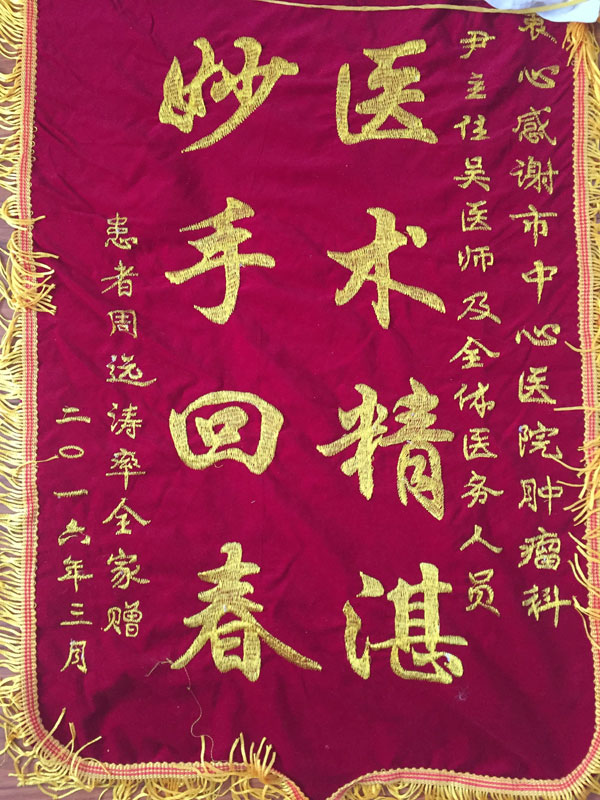 衷心感谢市中心医院肿瘤科
尹主任吴医师及全体医务人员
医术精湛
妙手回春
患者周逸涛率全家赠
二〇一六年三月